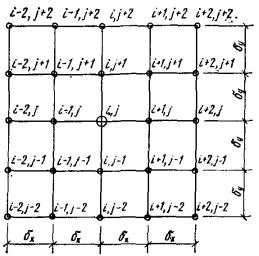 i-2, j+2 i-1, j+2 i, j+2 i+1, j+2 i+2, j+2
i-2, j+1 i-1, j+1 i, j+1 i+1, j+1 i+2, j+1
i-2, j i-1, j i, j i+1, j i+2, j
i-2, j-1 i-1, j-1 i, j-1 i+1, j-1 i+2, j-1
i-2, j-2 i-1, j-2 i, j-2 i+1, j-2 i+2, j-2
б_y
б_y
б_y
б_y
б_x б_x б_x б_x